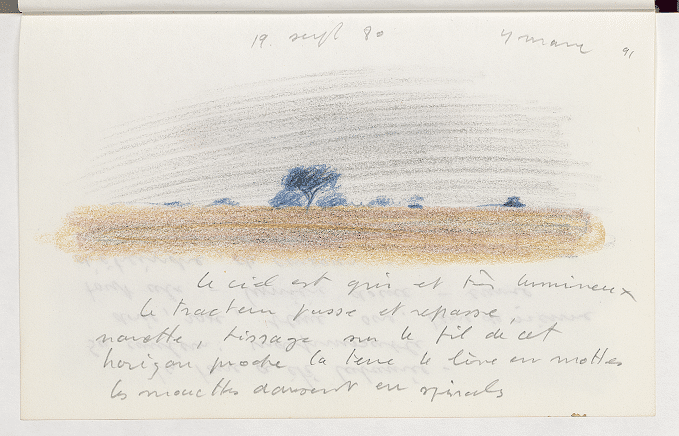 19. sept 80
91
le ciel est gris et très lumineux
le tracteur passe et repasse,
navette, tissage sur le fil de cet
horizon proche la terre se lève en mottes
les mouettes dansent en spirales